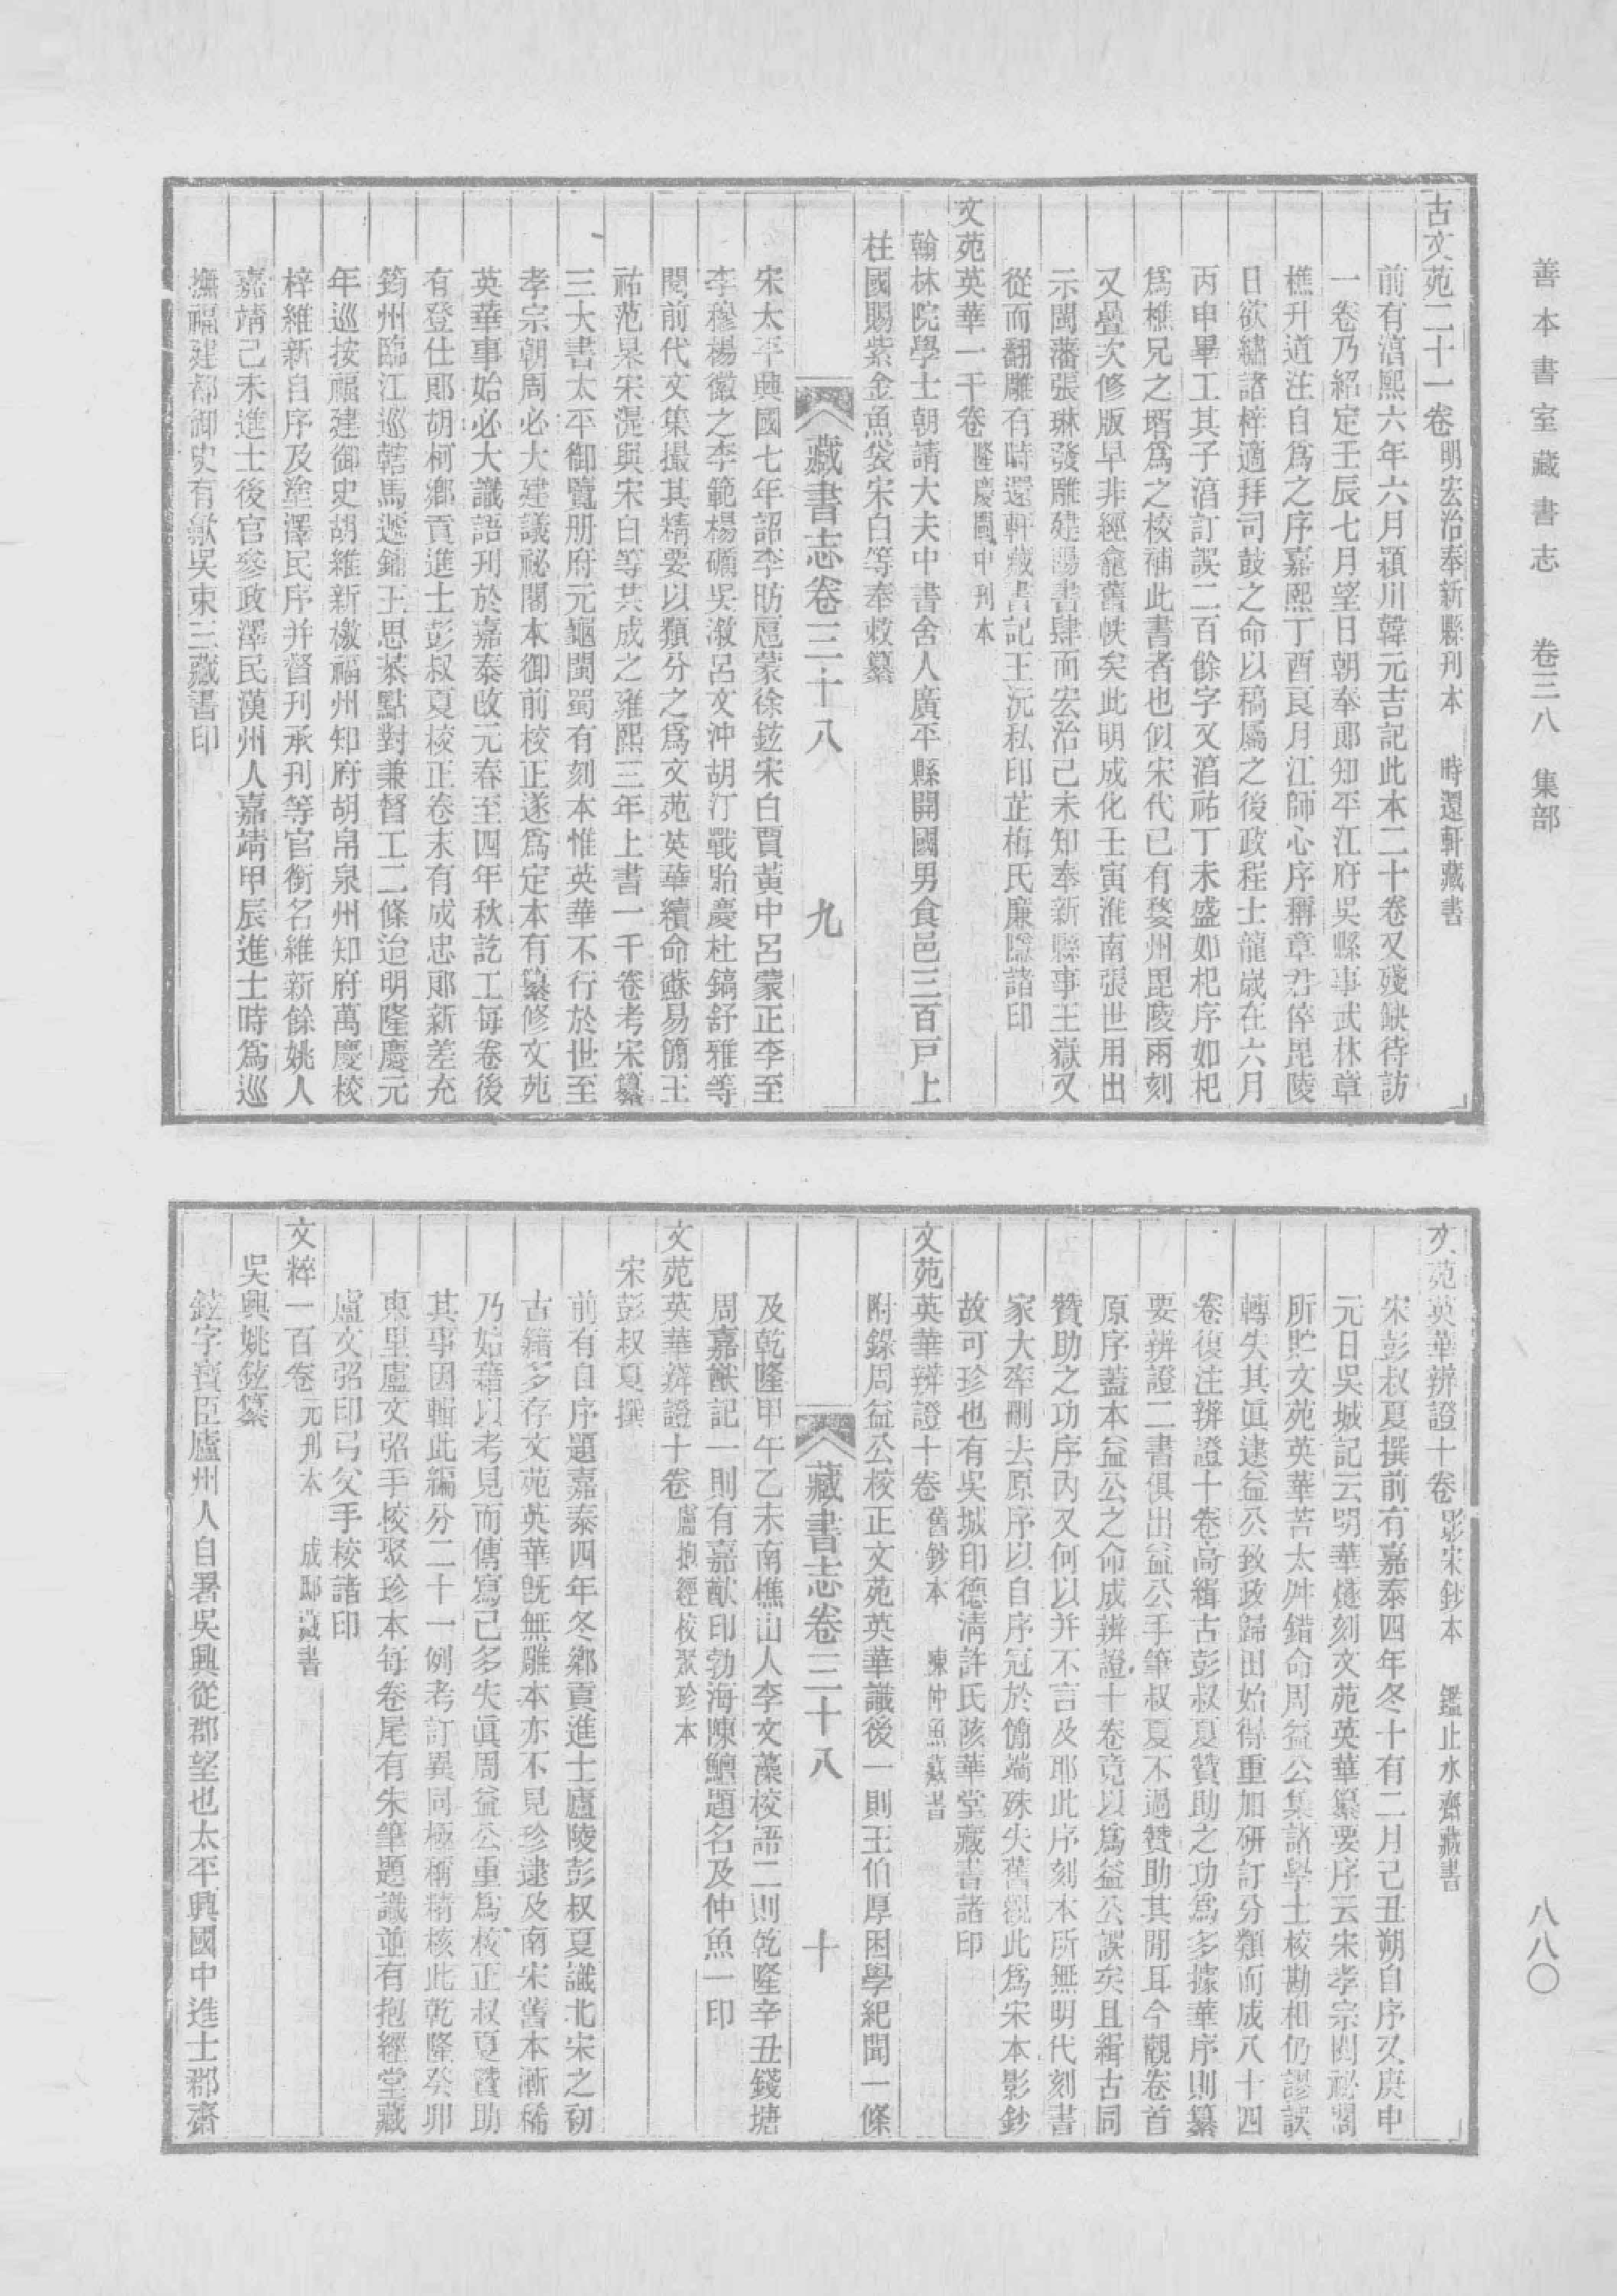 善本書室藏書志　卷三八　集部
古文苑二十一卷 明宏治奉新縣刊本　時還軒藏書
前有淳熙六年六月潁川韓元吉記此本二十卷又殘缺待訪
一卷乃紹定壬辰七月望日朝奉郎知平江府吳縣事武林章
樵升道注自爲之序嘉熙丁酉良月江師心序稱章君倅毘陵
日欲繡諸梓適拜司鼓之命以稿屬之後政程士龍歲在六月
丙申畢工其子淳訂誤二百餘字又淳祐丁未盛如杞序如杞
爲樵兄之壻爲之校補此書者也似宋代已有婺州毘陵兩刻
又疊次修版早非經龕舊帙矣此明成化壬寅淮南張世用出
示閩藩張琳發雕建陽書肆而宏治己未知奉新縣事王嶽又
從而翻雕有時還軒藏書記王沅私印芷梅氏廉隱諸印
文苑英華一千卷 隆慶閩中刊本
翰林院學士朝請大夫中書舍人廣平縣開國男食邑三百戸上
柱國賜紫金魚袋宋白等奉敕纂
藏書志卷三十八　九
宋太平興國七年詔李昉扈蒙徐鉉宋白賈黃中呂蒙正李至
李穆楊徽之李範楊礪吳淑呂文沖胡汀戰貽慶杜鎬舒雅等
閱前代文集撮其精要以類分之爲文苑英華續命蘇易簡王
祐范杲宋湜與宋白等共成之雍熙三年上書一千卷考宋纂
三大書太平御覽册府元龜閩蜀有刻本惟英華不行於世至
孝宗朝周必大建議祕閣本御前校正遂爲定本有纂修文苑
英華事始必大識語刊於嘉泰改元春至四年秋訖工每卷後
有登仕郎胡柯鄉貢進士彭叔夏校正卷末有成忠郎新差充
筠州臨江巡轄馬遞鋪王思恭點對兼督工二條迨明隆慶元
年巡按福建御史胡維新檄福州知府胡帛泉州知府萬慶校
梓維新自序及塗澤民序并督刊承刊等官銜名維新餘姚人
嘉靖己未進士後官參政澤民漢州人嘉靖甲辰進士時爲巡
撫福建都御史有歙吳東三藏書印
文苑英華辨證十卷 影宋鈔本　鑑止水齋藏書
宋彭叔夏撰前有嘉泰四年冬十有二月己丑朔自序又庚申
元日吳城記云明華燧刻文苑英華纂要序云宋孝宗閱祕閣
所貯文苑英華苦太舛錯命周益公集諸學士校勘相仍謬誤
轉失其眞逮益公致政歸田始得重加研訂分類而成八十四
卷復注辨證十卷高緝古彭叔夏贊助之功爲多據華序則纂
要辨證二書俱出益公手筆叔夏不過贊助其間耳今觀卷首
原序蓋本益公之命成辨證十卷竟以爲益公誤矣且緝古同
贊助之功序內又何以并不言及耶此序刻本所無明代刻書
家大率刪去原序以自序冠於簡端殊失舊觀此爲宋本影鈔
故可珍也有吳城印德淸許氏陔華堂藏書諸印
文苑英華辨證十卷 舊鈔本　陳仲魚藏書
附錄周益公校正文苑英華識後一則王伯厚困學紀聞一條
藏書志卷三十八　十
及乾隆甲午乙未南樵山人李文藻校語二則乾隆辛丑錢塘
周嘉猷記一則有嘉猷印勃海陳鱣題名及仲魚一印
文苑英華辨證十卷 盧抱經校聚珍本
宋彭叔夏撰
前有自序題嘉泰四年冬鄉貢進士廬陵彭叔夏識北宋之初
古籍多存文苑英華旣無雕本亦不見珍逮及南宋舊本漸稀
乃始藉以考見而傳寫已多失眞周益公重爲校正叔夏贊助
其事因輯此編分二十一例考訂異同極稱精核此乾隆癸卯
東里盧文弨手校聚珍本每卷尾有朱筆題識並有抱經堂藏
盧文弨印弓父手校諸印
文粹一百卷 元刋本　成邸藏書
吳興姚鉉纂
鉉字寶臣廬州人自署吳興從郡望也太平興國中進士郡齋
八八〇